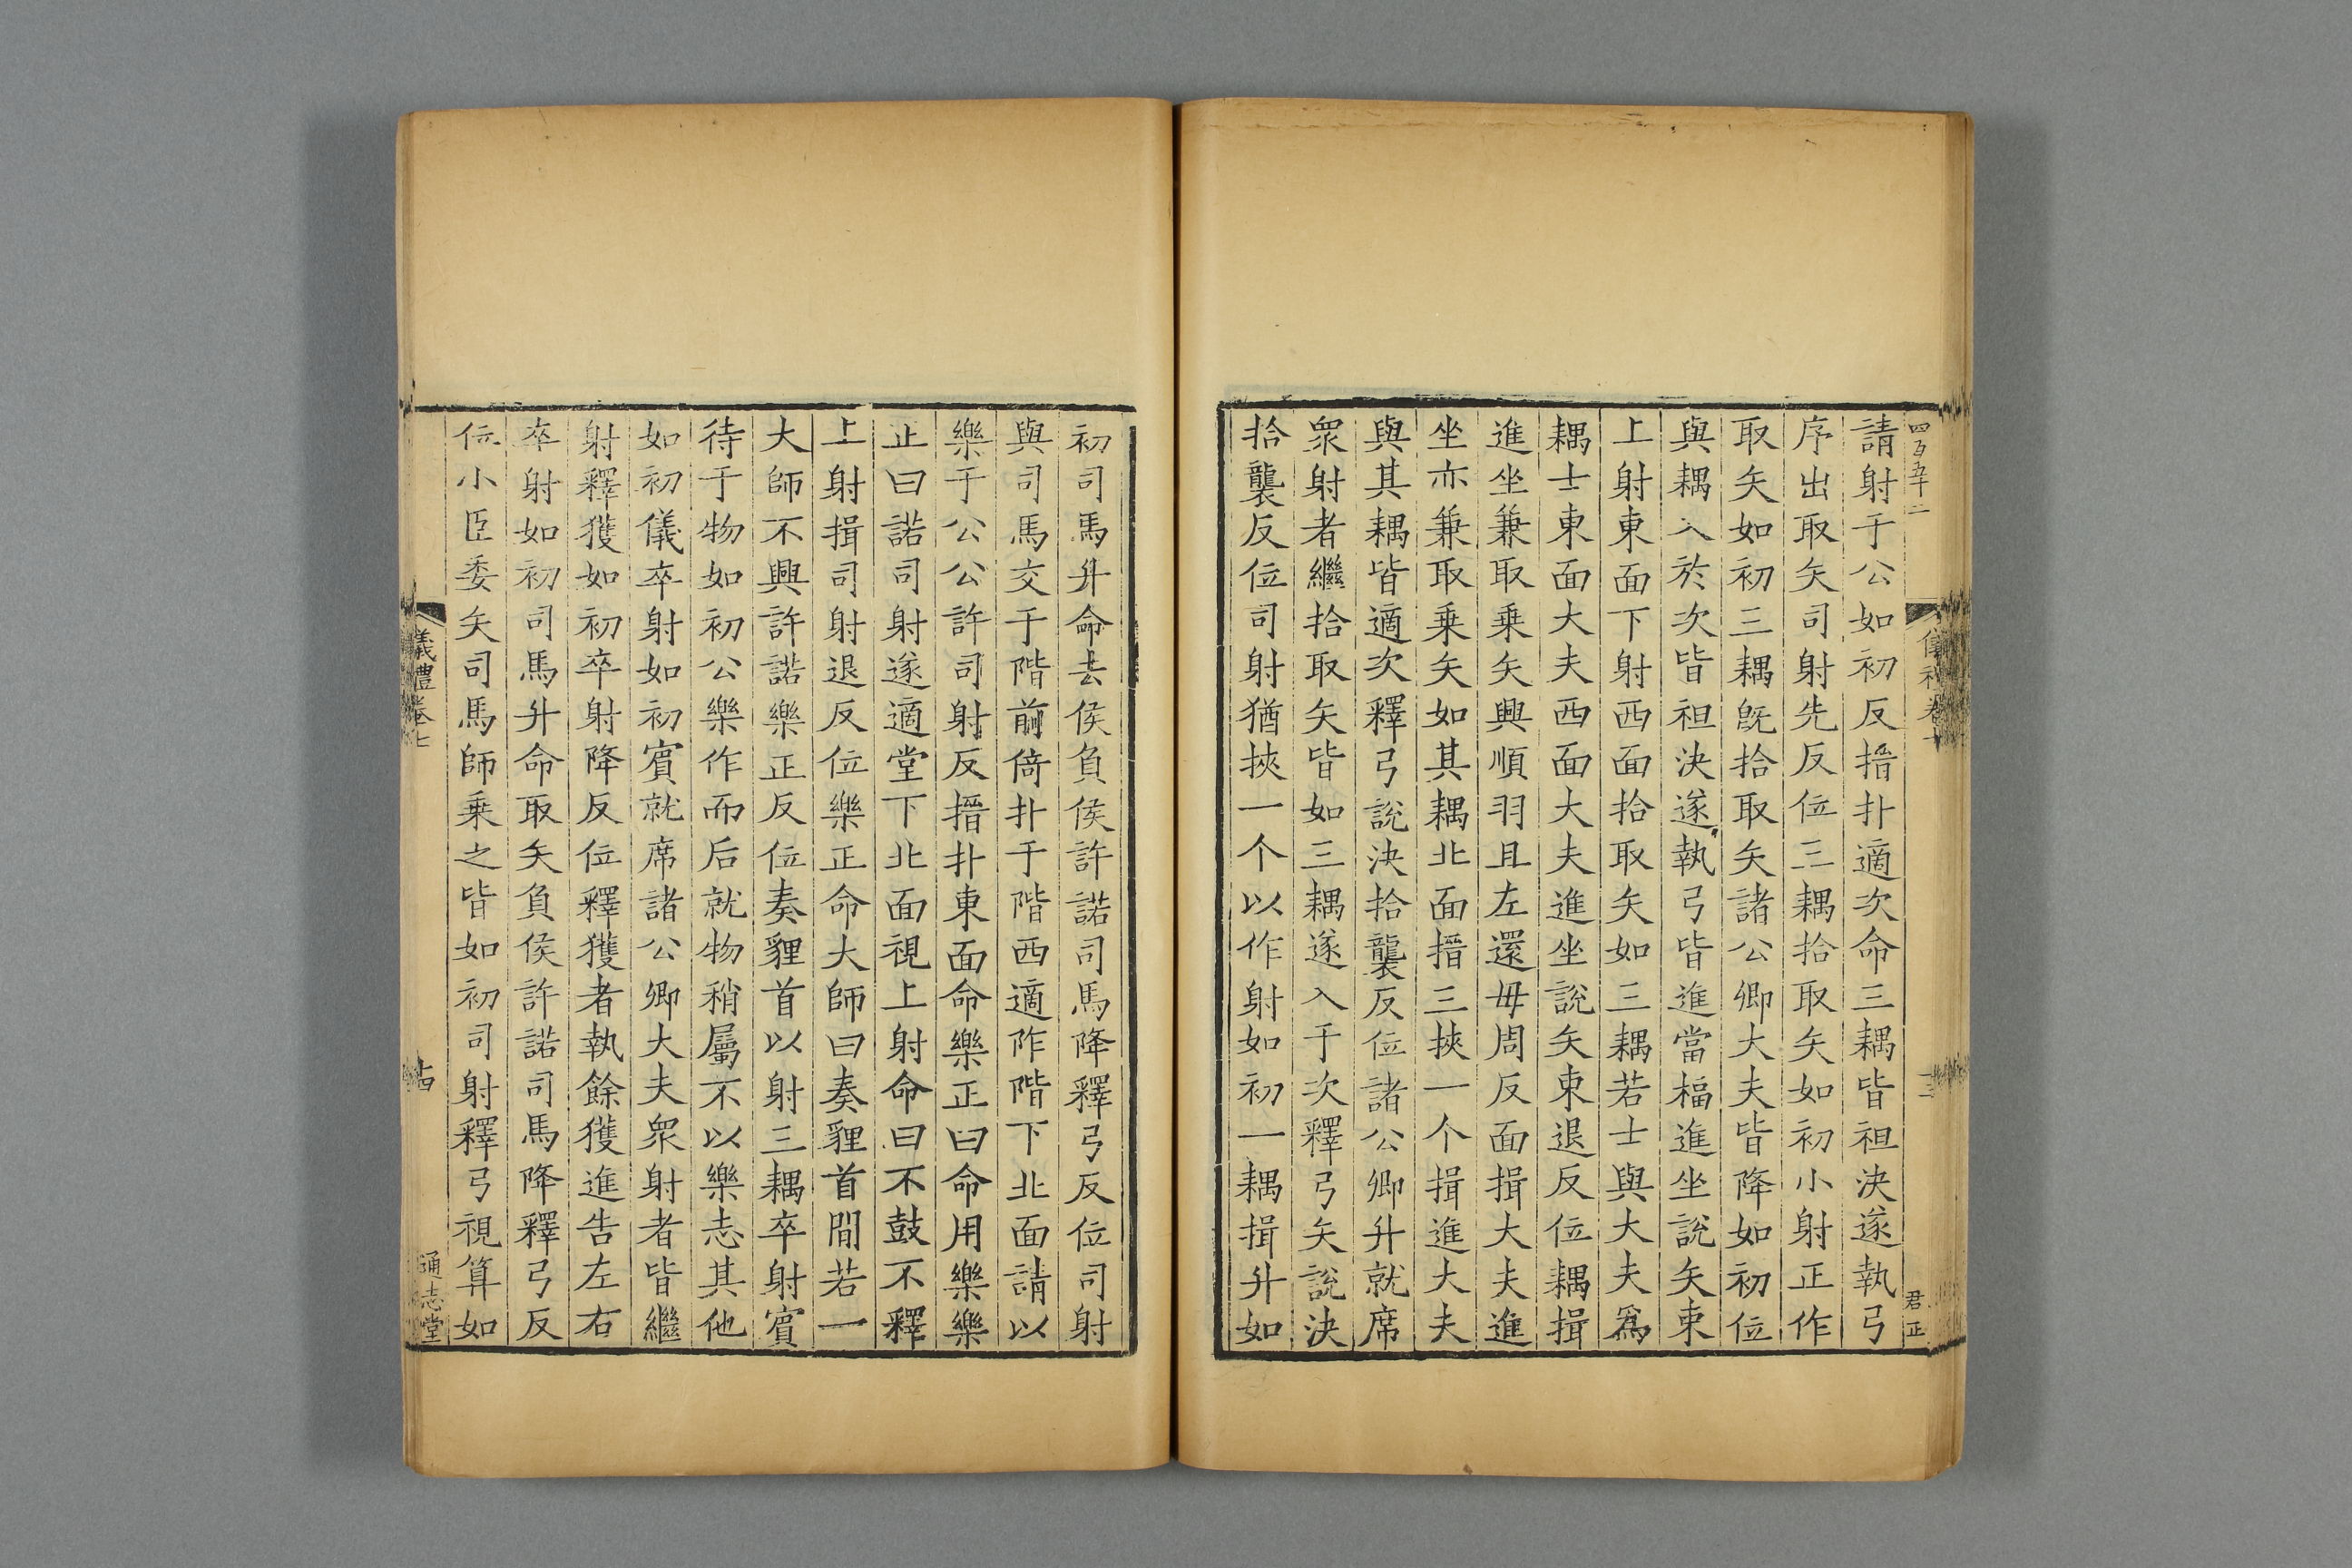 四百五十二
君正
請射于公如初反搢扑適次命三耦皆袒決遂執弓
序出取矢司射先反位三耦拾取矢如初小射正作
取矢如初三耦旣拾取矢諸公卿大夫皆降如初位
與耦入於次皆袒決遂執弓皆進當楅進坐說矢束
上射東面下射西面拾取矢如三耦若士與大夫爲
耦士東面大夫西面大夫進坐說矢束退反位耦揖
進坐兼取乗矢興順羽且左還毋周反面揖大夫進
坐亦兼取乗矢如其耦北面搢三挾一个揖進大夫
與其耦皆適次釋弓說決拾襲反位諸公卿升就席
眾射者繼拾取矢皆如三耦遂入于次釋弓矢說決
拾襲反位司射猶挾一个以作射如初一耦揖升如
初司馬升命去侯負侯許諾司馬降釋弓反位司射
與司馬交于階前倚扑于階西適阼階下北面請以
樂于公公許司射反搢扑東面命樂正曰命用樂樂
正曰諾司射遂適堂下北面視上射命曰不鼓不釋
上射揖司射退反位樂正命大師曰奏貍首間若一
大師不興許諾樂正反位奏貍首以射三耦卒射賓
待于物如初公樂作而后就物稍屬不以樂志其他
如初儀卒射如初賓就席諸公卿大夫眾射者皆繼
射釋獲如初卒射降反位釋獲者執餘獲進告左右
卒射如初司馬升命取矢負侯許諾司馬降釋弓反
位小臣委矢司馬師乗之皆如初司射釋弓視算如
儀禮卷七
十四
通志堂